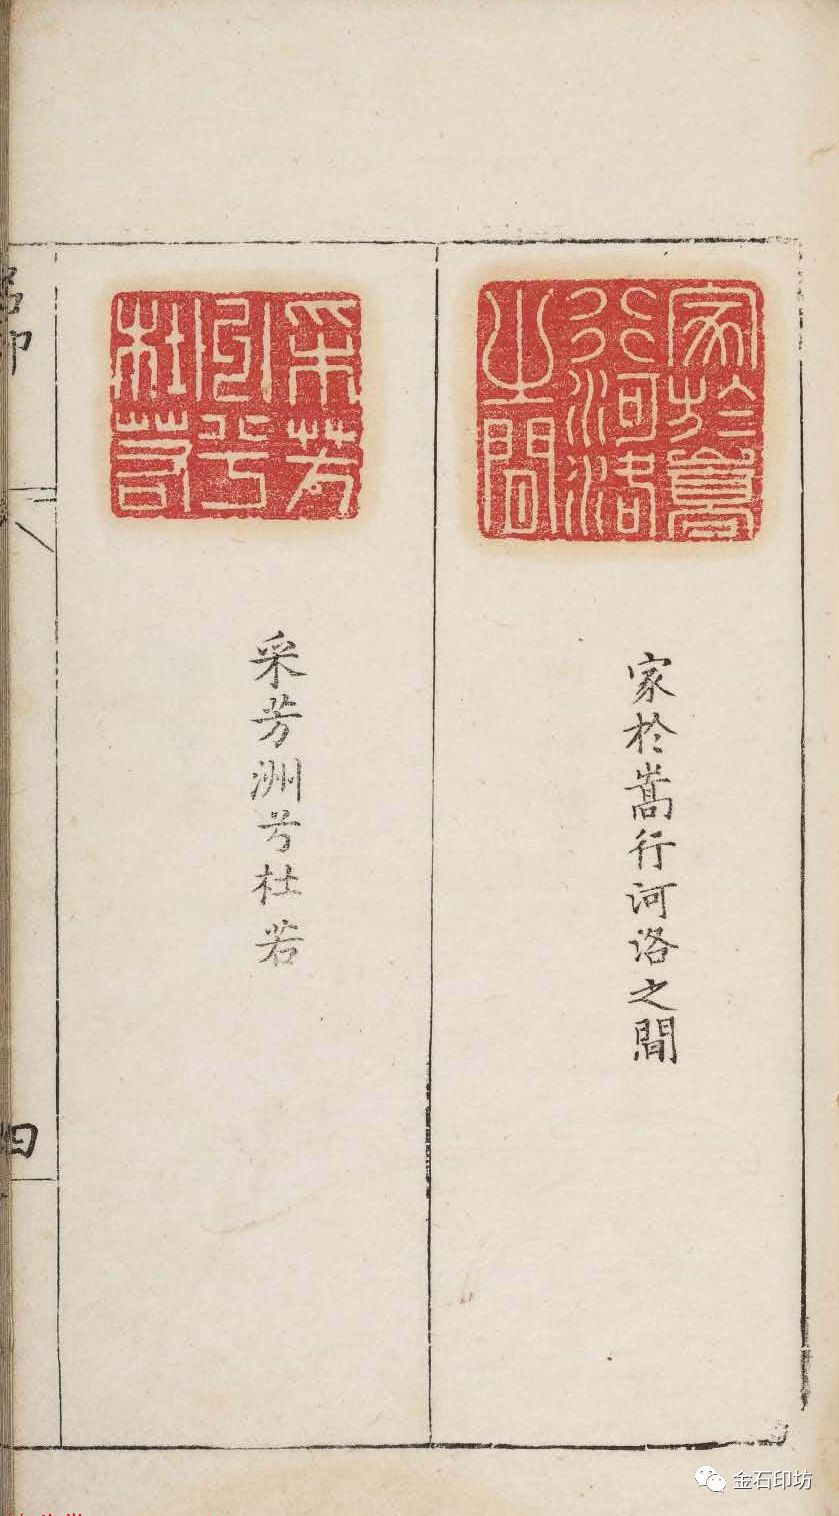 家於嵩
行河洛
之間
家於嵩行河洛之間
采芳
洲兮
杜若
采芳洲兮杜若
印
四
金石印坊